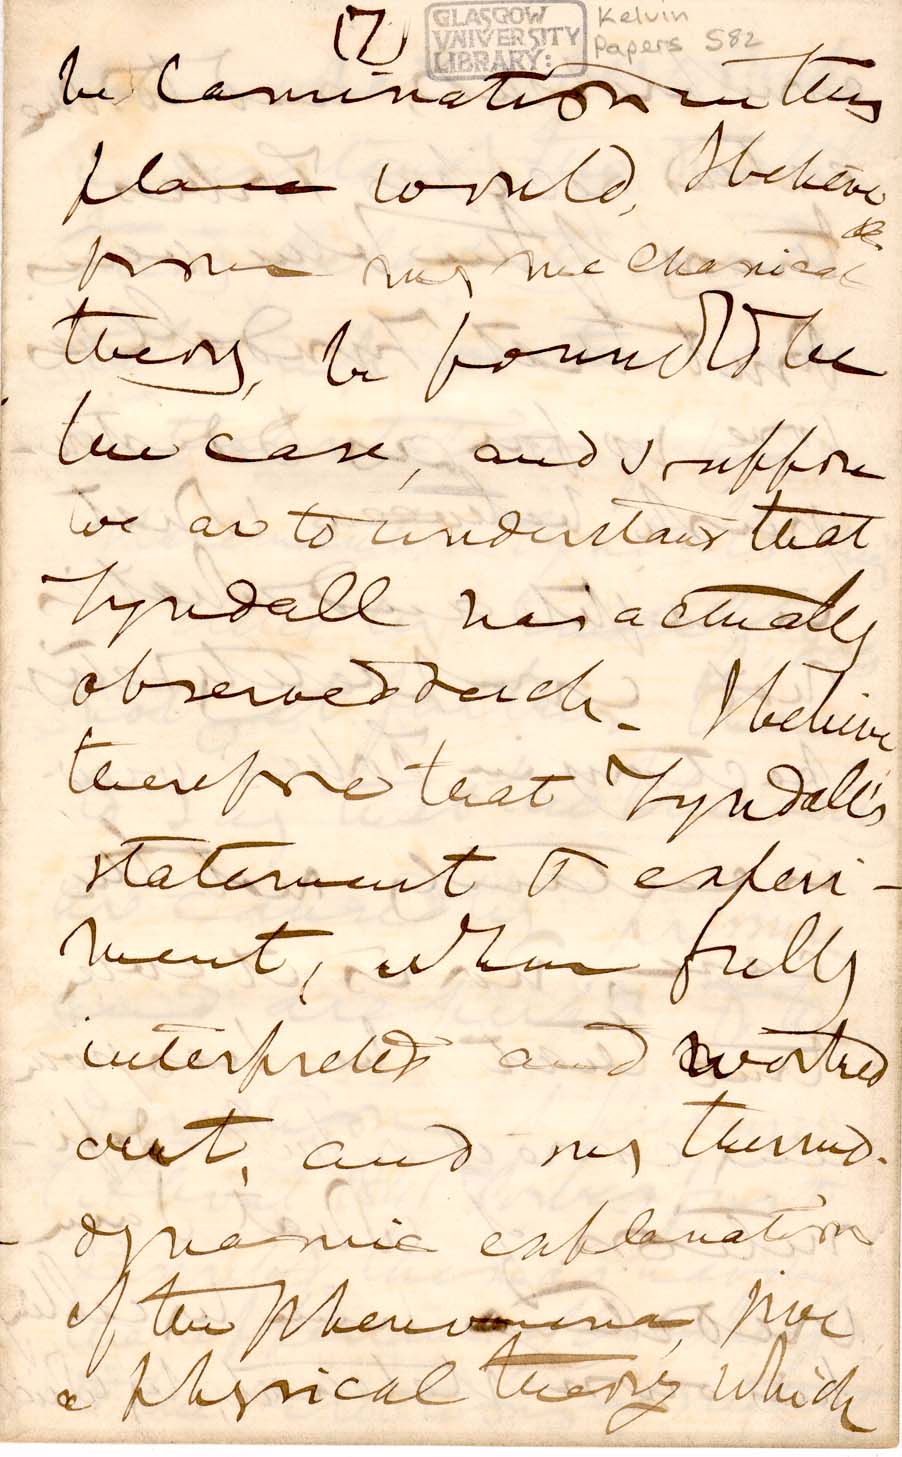 (7)
GLASGOW
UNIVERSITY
LIBRARY:
Kelvin
Papers S82
be lamination in this
plane would, I believe
from my mechanical
theory, be found to be
the case, and I suppose
we are to understand that
Tyndall has actually
observed such. I believe
therefore that Tyndall's
statement & experi-
ment, when fully
interpreted and worked
out, and my thermo-
dynamic explanation
of the phenomena, give
a physical theory which